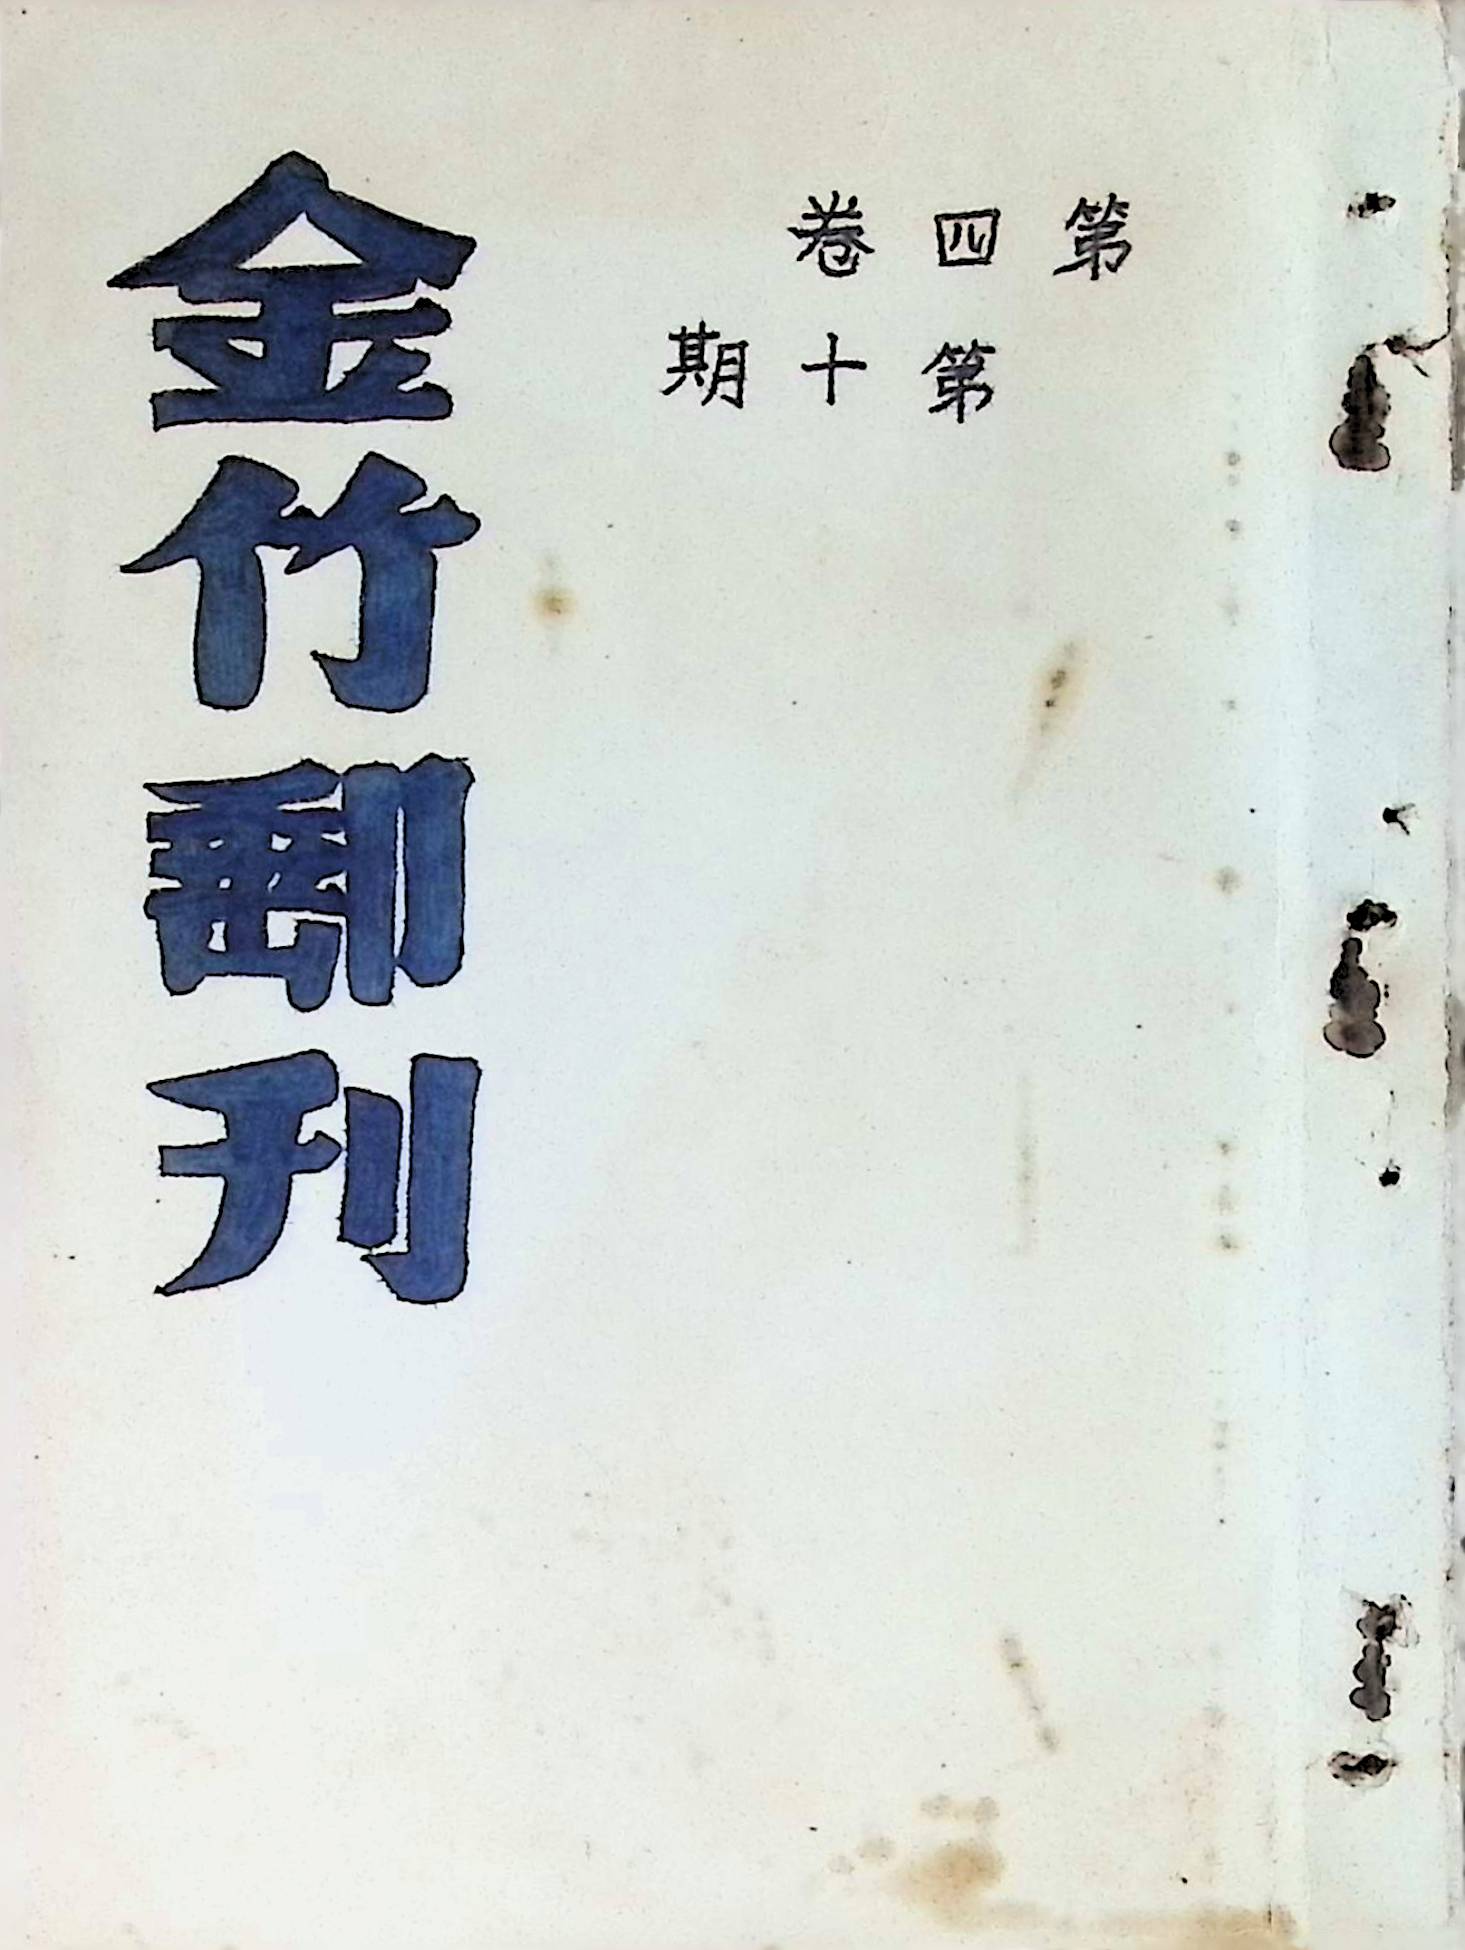 第四卷
第十期
金竹郵刊